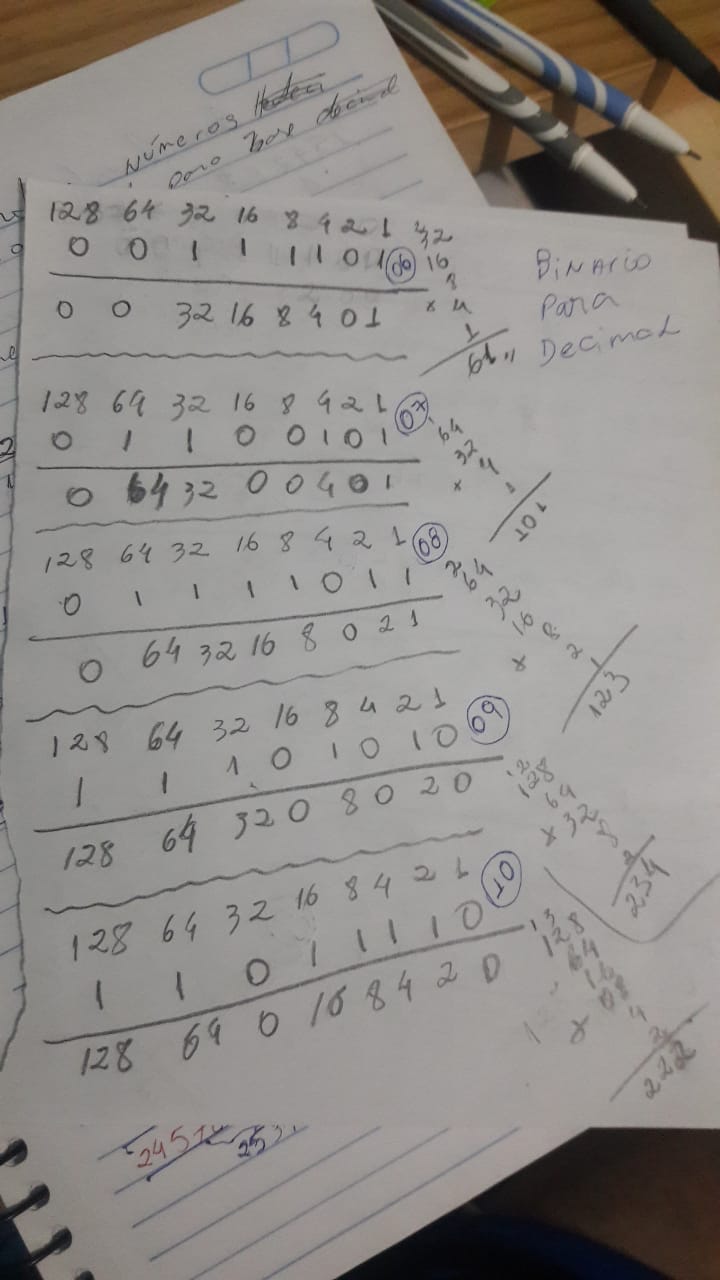 Números
para base decimal
128 64 32 16 8 4 2 1
0 0 1 1 1 1 0 1 06
0 0 32 16 8 4 0 1
32
16
8
4
1
61
Binario
Para
Decimal
128 64 32 16 8 4 2 1 07
0 1 1 0 0 1 0 1
0 64 32 0 0 4 0 1
64
32
4
101
128 64 32 16 8 4 2 1 08
0 1 1 1 1 0 1 1
0 64 32 16 8 0 2 1
64
32
16
8
2
1
123
128 64 32 16 8 4 2 1
1 1 1 0 1 0 1 0 09
128 64 32 0 8 0 2 0
128
64
32
8
2
234
128 64 32 16 8 4 2 1 10
1 1 0 1 1 1 1 0
128 64 0 16 8 4 2 0
128
64
16
8
4
2
222